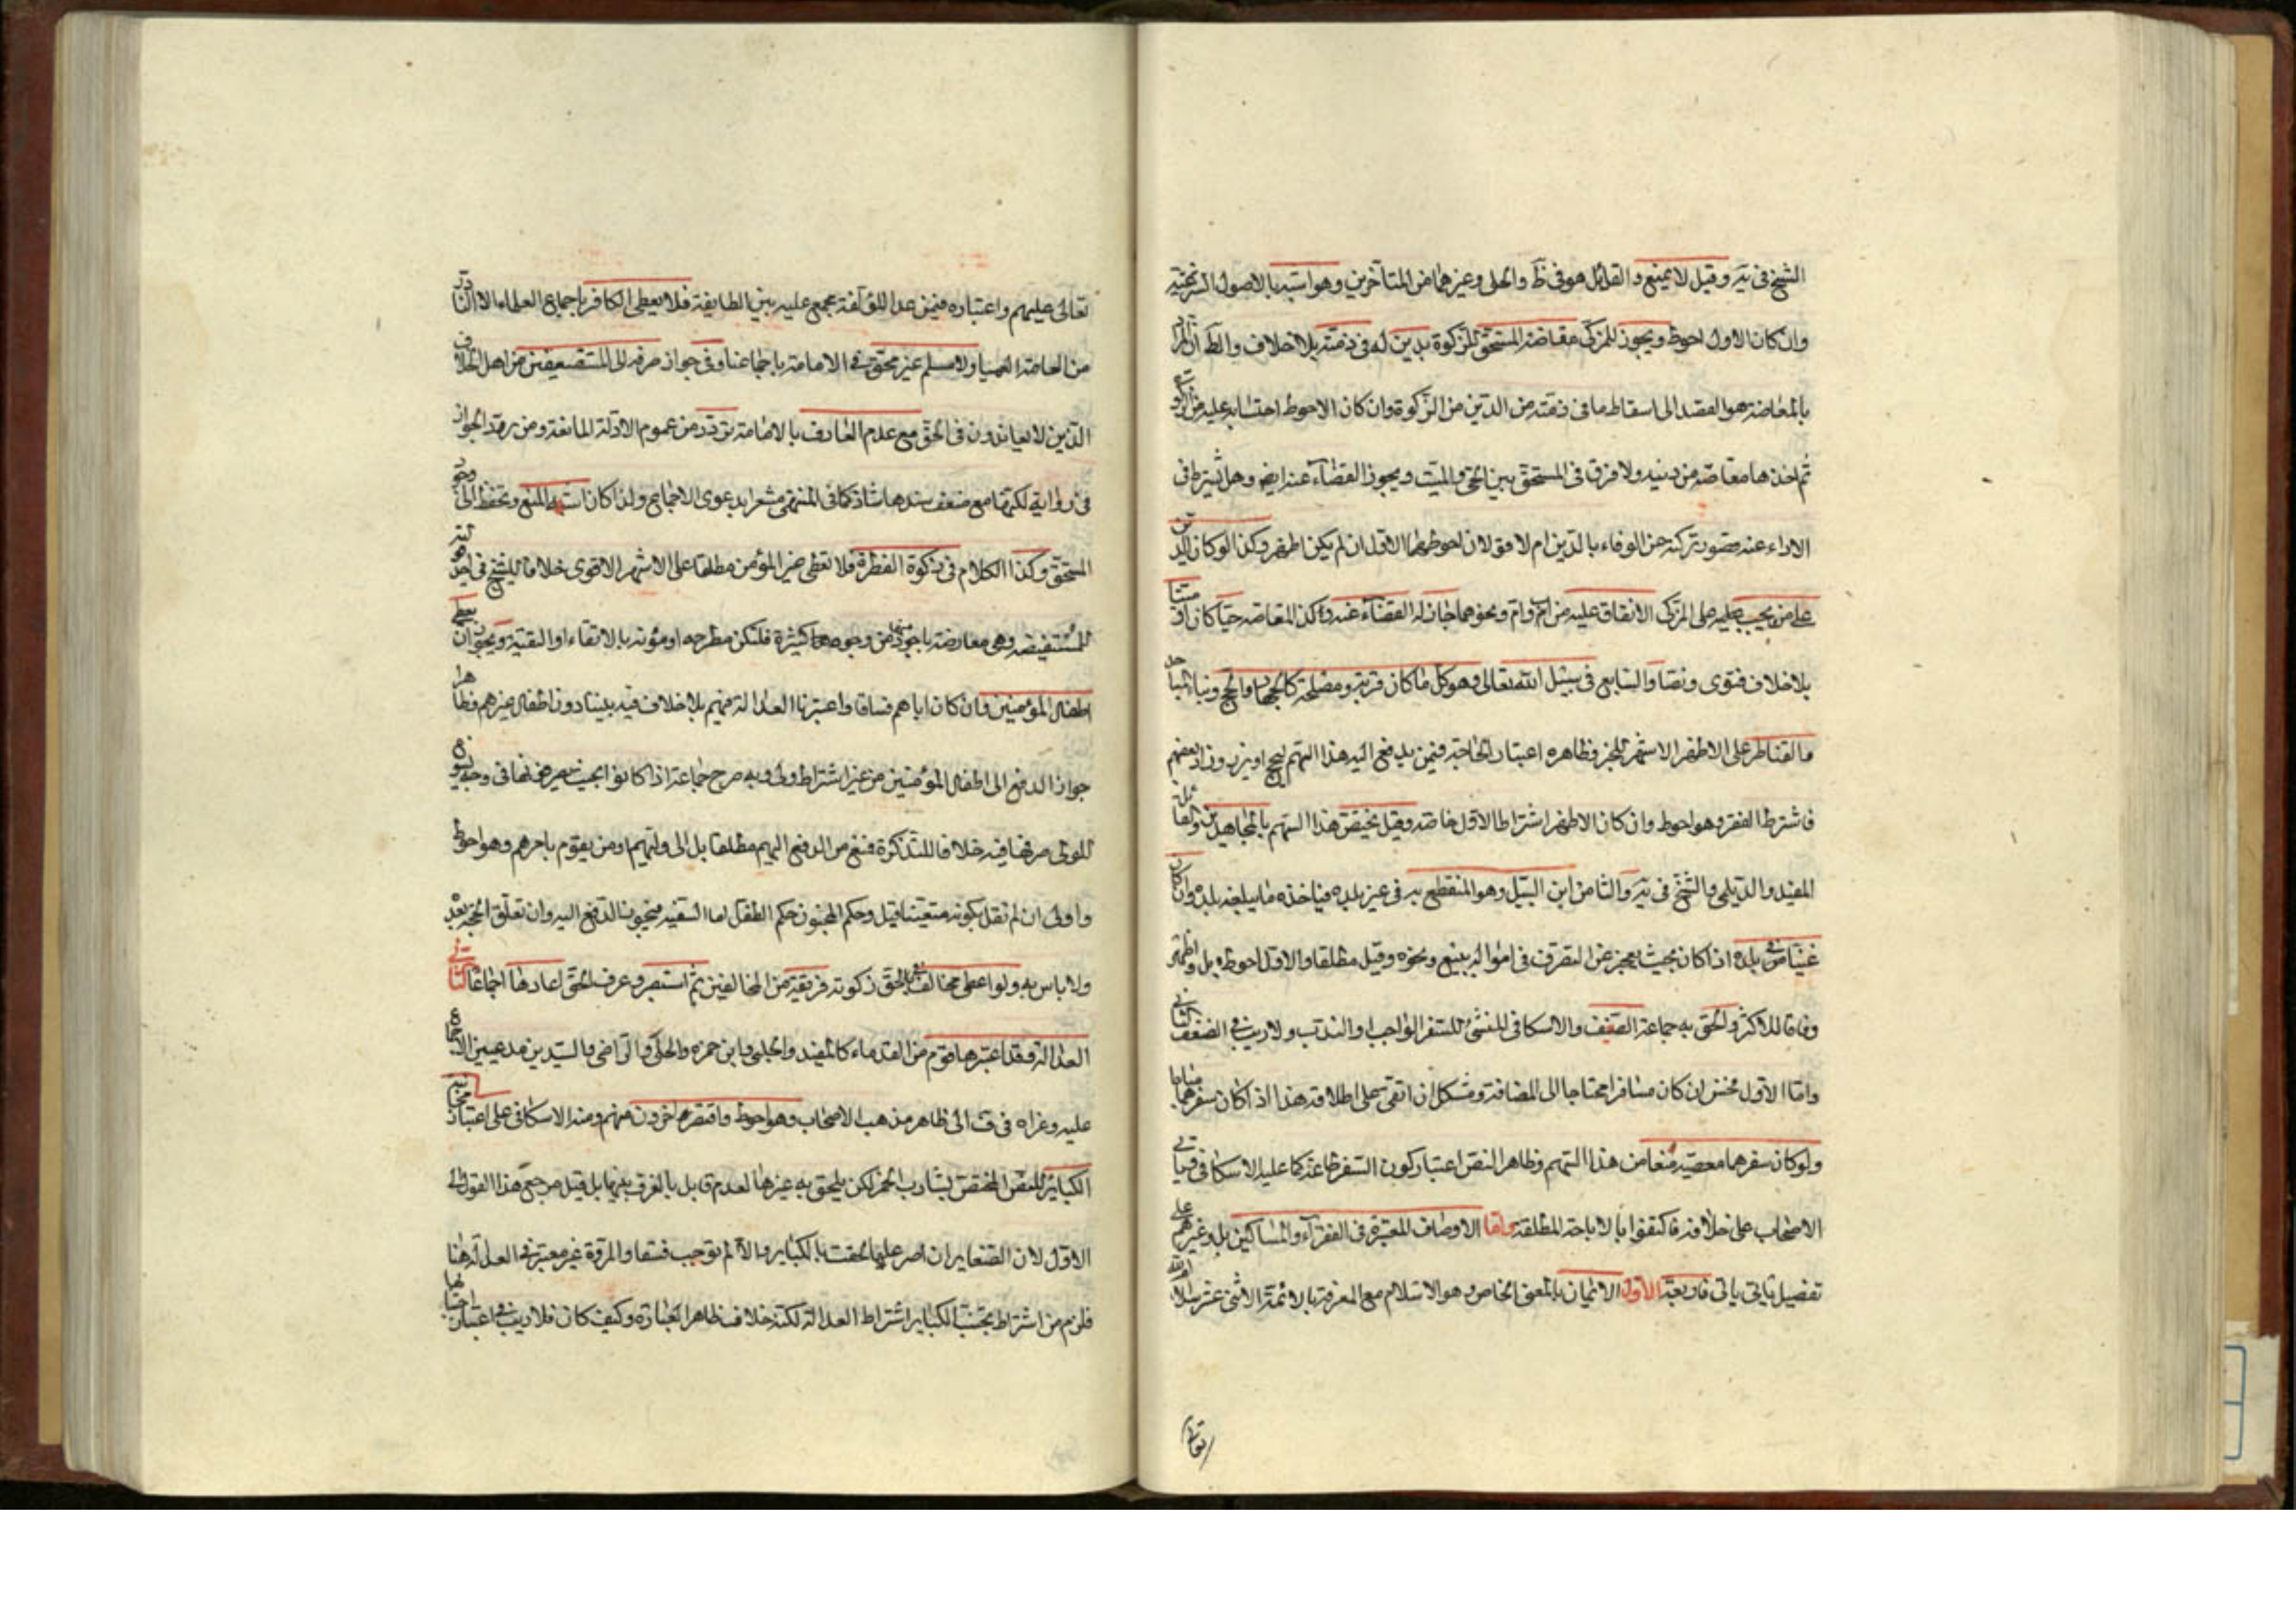 الشيخ في ية وقيل لا يمنع والقائل هو في ظ والحلي وغيرهما من المتأخرين وهو اشبه بالاصول الشرعية
وان كان الاول احوط ويجوز للمزكي مقاصة المستحق للزكوة بدين له في ذمته بلا خلاف والظ ان المراد
بالمقاصة هو القصد الى اسقاط ما في ذمته من الدين من الزكوة وان كان الاحوط احتسابه عليه من الزكوة
ثم اخذها مقاصة من دينه ولا فرق في المستحق بين الحي والميت ويجوز القضاء عنه ايض وهل يشترط في
الاداء عنه قصور تركته عن الوفاء بالدين ام لا قولان احوطهما الاول ان لم يكن اظهر وكذا لو كان الدين
على من يجب عليه على المزكي الانفاق عليه من اب وام ونحوهما جاز له القضاء عنه وكذا المقاصة حيا كان او ميتا
بلا خلاف فتوى ونصا والسابع في سبيل الله تعالى وهو كل ما كان قربة ومصلحة كالجهاد والحج وبناء المساجد
والقناطر على الاظهر الاشهر للخبر وظاهره اعتبار الحاجة فيمن يدفع اليه هذا السهم ليحج او يزور وزاد بعضهم
فاشترط الفقر وهو احوط وان كان الاظهر اشتراط الاول خاصة وقيل يختص هذا السهم بالمجاهدين والقائل
المفيد والديلمي والشيخ في ية والثامن ابن السبيل وهو المنقطع به في غير بلده فياخذ ما يبلغه بلده وان كان
غنيا في بلده اذا كان بحيث يعجز عن التصرف في امواله ببيع ونحوه وقيل مطلقا والاول احوط بل واظهر
وفاقا للاكثر والحق به جماعة الضيف والاسكافي المنشئ للسفر الواجب والندب ولا ريب في الضعف الثاني
واما الاول فحسن ان كان مسافرا محتاجا الى الضيافة ومشكل ان ابقي على اطلاقه هذا اذا كان سفرهما مباحا
ولو كان سفرهما معصية منعا من هذا السهم وظاهر النص اعتبار كون السفر طاعة كما عليه الاسكافي وباقي
الاصحاب على خلافه فاكتفوا بالاباحة المطلقة واما الاوصاف المعتبرة في الفقراء والمساكين بل وغيرهم على
تفصيل ياتي فاربعة الاول الايمان بالمعنى الخاص وهو الاسلام مع المعرفة بالائمة الاثنى عشر سلام الله
تعالى
تعالى عليهم واعتباره فيمن عدا المؤلفة مجمع عليه بين الطايفة فلا يعطى الكافر باجماع العلماء الا النادر
من العامة العمياء ولا مسلم غير محق في الامامة باجماعنا وفي جواز صرفه الى المستضعفين من اهل الخلاف
الذين لا يعاندون في الحق مع عدم العارف بالامامة تردد من عموم الادلة المانعة ومن ورود الجواز
في رواية لكنها مع ضعف سندها شاذ كما في المنتهى مشعرا بدعوى الاجماع ولذا كان اشبه المنع وتحفظ الى وجود
المستحق وكذا الكلام في زكوة الفطرة فلا تعطى غير المؤمن مطلقا على الاشهر الاقوى خلافا للشيخ
للمستفيضة وهي معارضة باجود منها من وجوه كثيرة فلتكن مطرحه او مؤولة بالاتقاء او التقية ويجوز ان يعطى
اطفال المؤمنين وان كان اباهم فساقا واعتبرنا العدالة فيهم بلا خلاف فيه بيننا دون اطفال غيرهم وظاهرها
جواز الدفع الى اطفال المؤمنين من غير اشتراط ولي وبه صرح جماعة اذا كانوا بحيث يصرفونها في وجه يسوغ
للولي صرفها فيه خلافا للتذكرة فمنع من الدفع اليهم مطلقا بل الى وليهم او من يقوم بامرهم وهو احوط
واولى ان لم نقل بكونه متعينا قيل وحكم المجنون حكم الطفل اما السفيه فيجوز الدفع اليه وان تعلق الحجر بعد
ولا باس به ولو اعطى مخالف للحق زكوته فريقه من المخالفين ثم استبصر وعرف الحق اعادها اجماعا الثاني
العدالة وقد اعتبرها قوم من القدماء كالمفيد والحلبي وابن حمزه والحلي والقاضي والسيدين مدعيين الاجماع
عليه وعزاه في ف الى ظاهر مذهب الاصحاب وهو احوط واقتصر اخرون منهم ومنه الاسكافي على اعتبار تجنب
الكباير للنص المختص بشارب الخمر لكن يلحق به غيرها لعدم قايل بالفرق بينها بل قيل مرجع هذا القول الى
الاول لان الصغاير ان اصر عليها الحقت بالكباير والا لم توجب فسقا والمروة غير معتبرة في العدالة هنا
فلزم من اشتراط تجنب الكباير اشتراط العدالة لكنه خلاف ظاهر العبارة وكيف كان فلا ريب في اعتبار اجتنابها